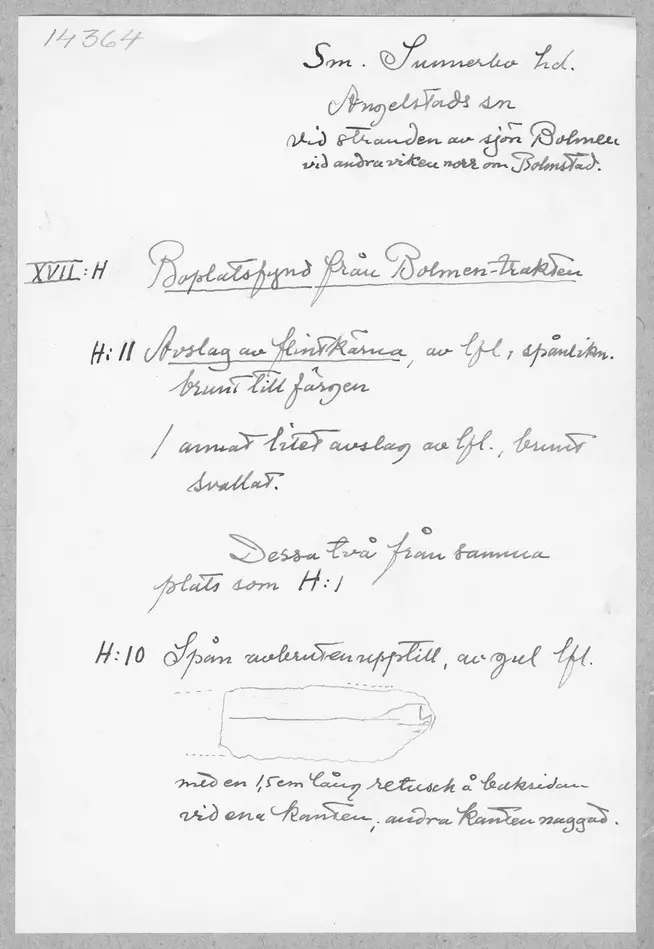 14364
Sm. Sunnerbo hd.
Angelstads sn
vid stranden av sjön Bolmen
vid andra viken norr om Bolmstad.
XVII:H Boplatsfynd från Bolmen-trakten
H:11 Avslag av flintkärna, av lfl, spånlikn.
brunt till färgen
1 annat litet avslag av lfl., brunt
svallat.
Dessa två från samma
plats som H:1
H:10 Spån avbruten upptill, av gul lfl.
med en 1,5 cm lång retusch å baksidan
vid ena kanten, andra kanten naggad.